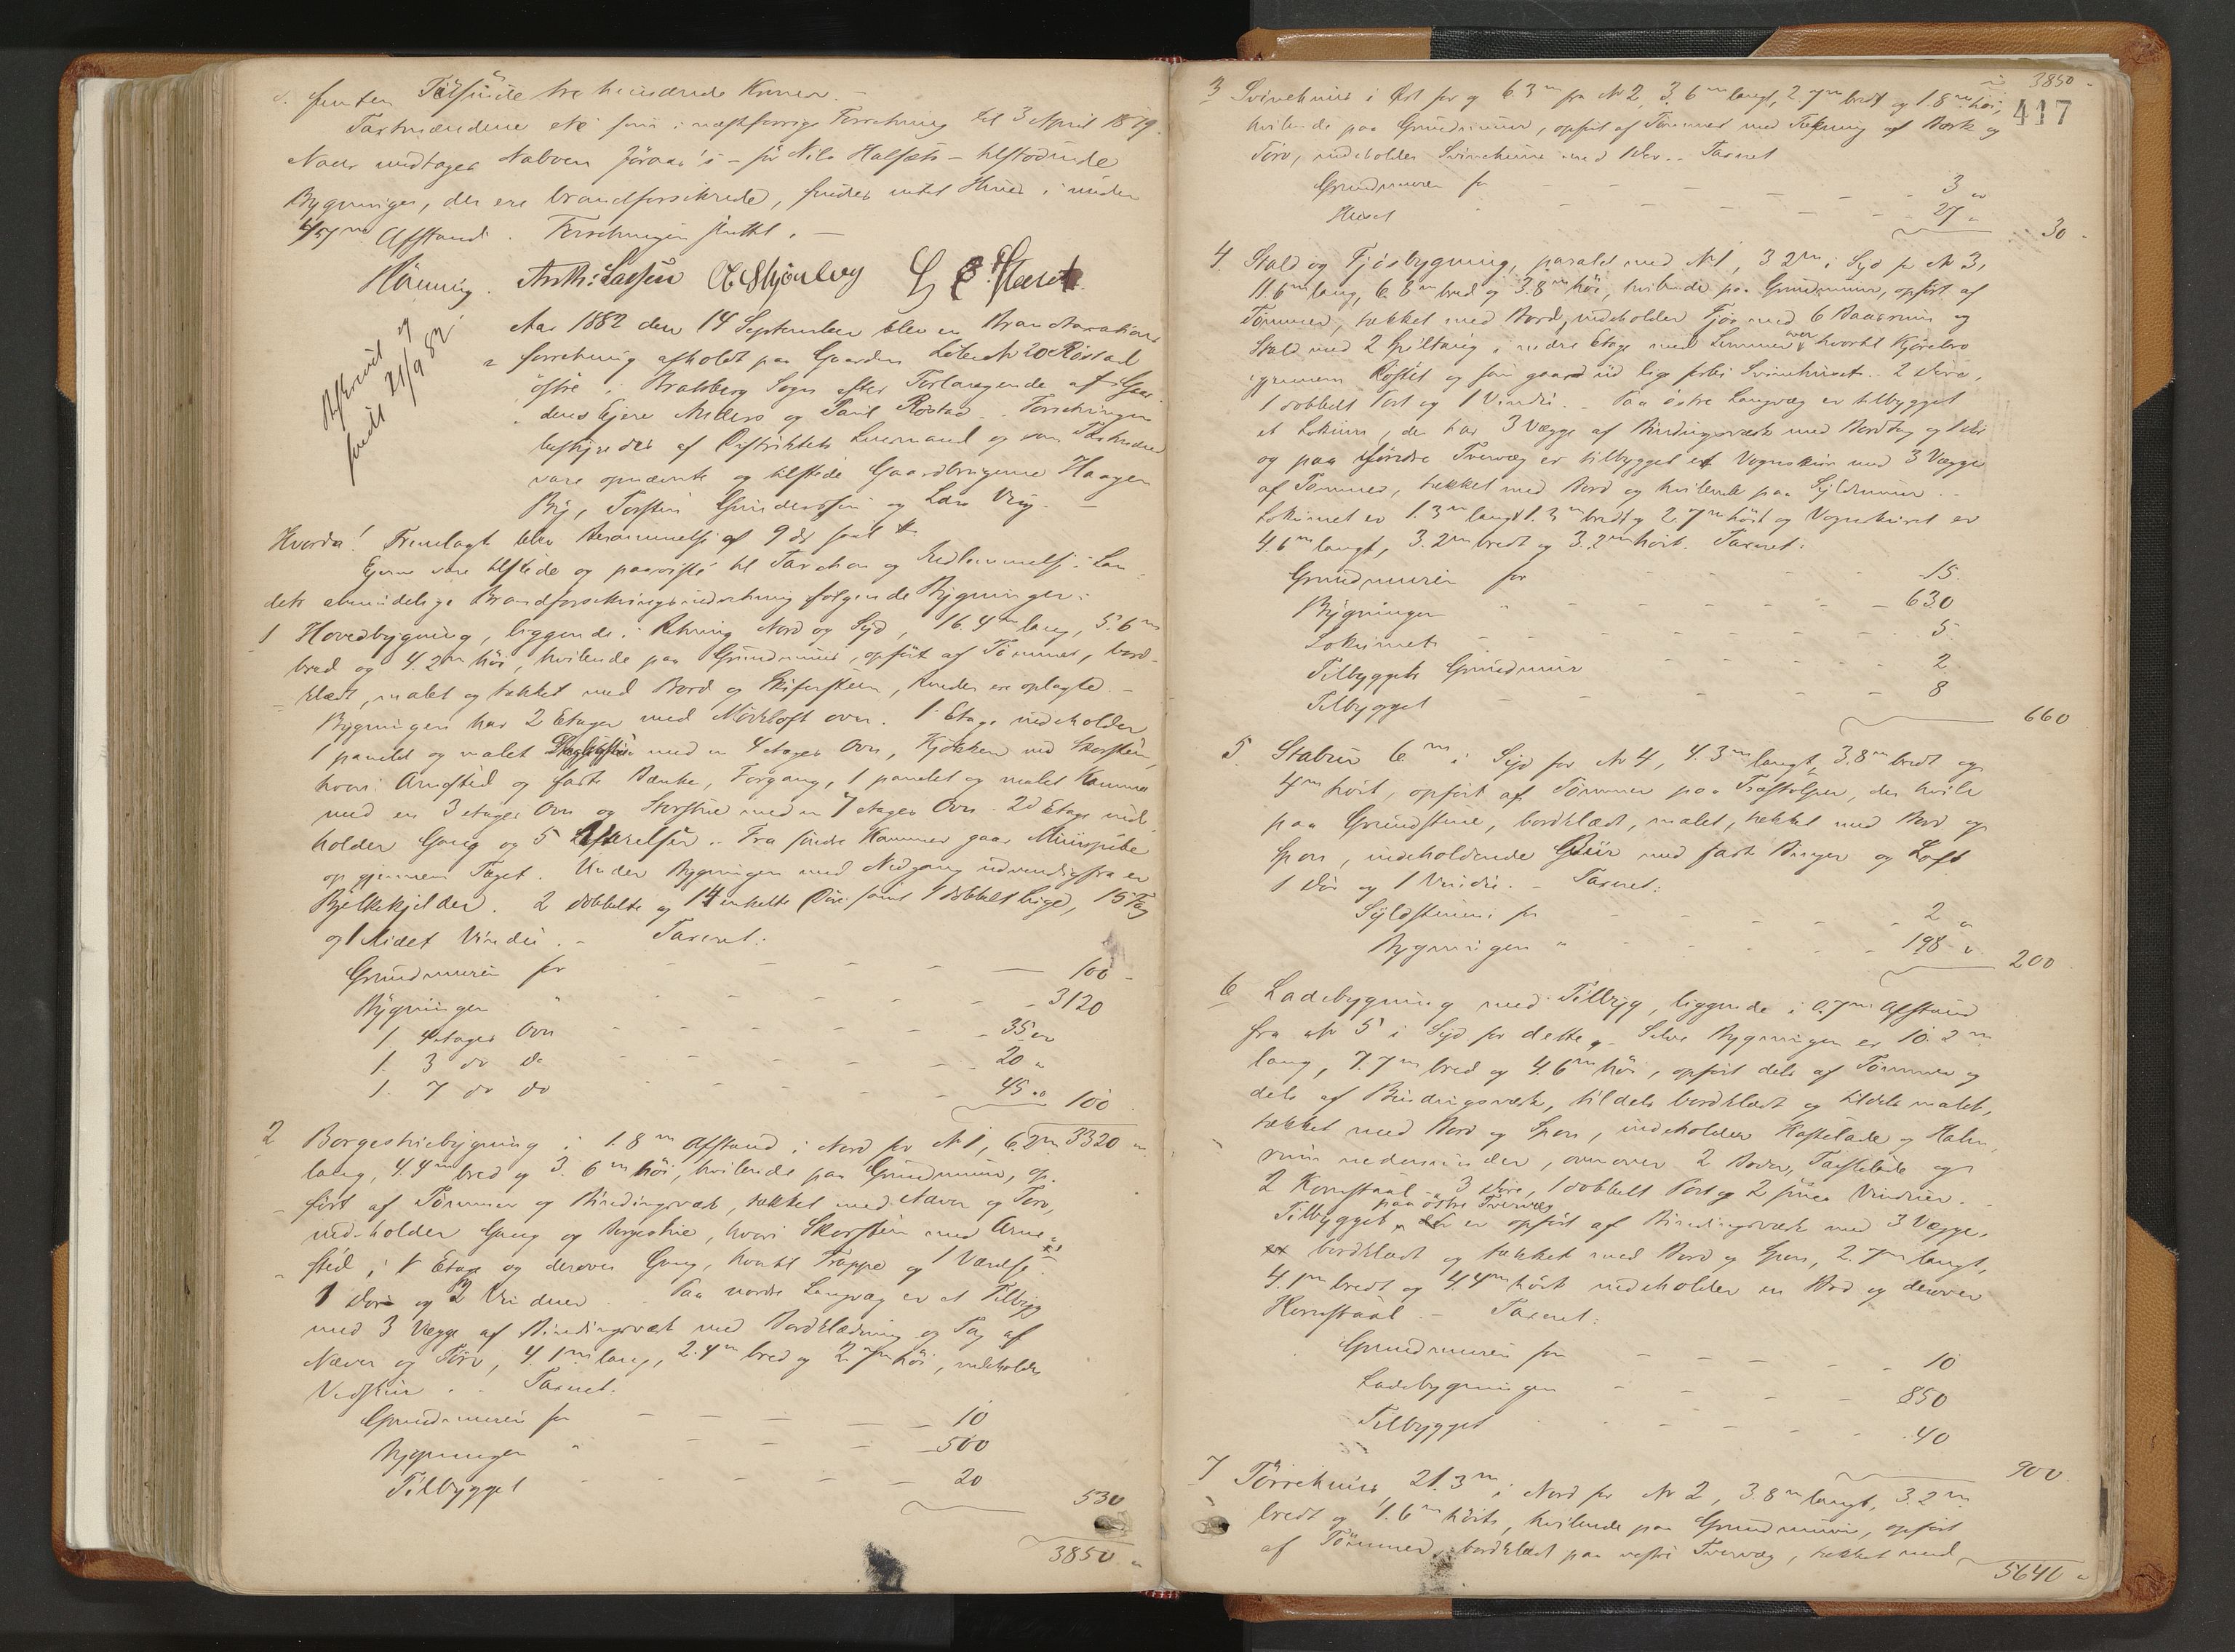 Totusinde tre hundrede Kroner.
Taxtmændene etc som i næstforrige Forretning dd 3 April 1879.
Naar undtages Naboen Jöraas's - för Nils Halsets - tilstödende
Bygninger, der ere brandforsikrede, findes intet Huus i under
Afstand. Forretningen sluttet. -
Hönning. Anth: Larssen
Afskrevet og
sendt 21/9 82.
Aar 1882 den 14 September blev en Brandtaxations
forretning afholdt paa Gaarden Löbe No 20 Röstad
östre i Brakberg Sogn efter Forlangende af Gaar-
dens Ejere Anders og Paul Röstad. - Forretningen
bestyredes af Distriktets Lensmand og som Taxtmænd
vare opnævnte og tilstede Gaardbrugerne Haagen
By, Torsten Gunderssen og Lars Vey. -
Hvorda! Fremlagt blev Berammelse af 9 ds saal
Ejerne vare tilstede og paaviste til Taxation og Indlemmelse i Lan-
dets almindelige Brandforsikringsindretning følgende Bygninger:
1 Hovedbygning, liggende i Retning Nord og Syd, 16.4 m lang, 5.6 m
bred og 4.2 m höi, hvilende paa Grundmuur, opfört af Tömmer, bord-
klædt, malet og tækket med Bord og Skifersteen, Runder ere oplagte. -
Bygningen har 2 Etager med Mörkloft over. 1 Etage indeholder
1 panelet og malet Dagligstue med en 4 etages Ovn, Kjökken med Skorsteen,
hvori Arnested og faste Bænke, Forgang, 1 panelet og malet Kammer
med en 3 etages Ovn og Storstue med en 7 etages Ovn. 2d Etage inde-
holder Gang og 5 Værelser. - Fra söndre Kammer gaar Muurpibe
op gjennem Taget. Under Bygningen med Nedgang udvendigfra er
Bjelkekjelder. 2 dobbelte og 14 enkelte Döre samt 1 dobbelt Lige, 15 Fag
og 1 Lidet Vindu. - Taxeret:
Grundmuren for 100 -
Bygningen " 3120
1. 4 etages Ovn 35 "
1. 3 do do 20 "
1. 7 do do 45 " 100
3320 "
2 Borgestuebygning i 1.8 m Afstand i Nord for No 1, 6.2 m
lang, 4.4 m bred og 3.6 m höi, hvilende paa Grundmuur, op-
fört af Tömmer og Bindingsværk, tækket med Næver og Törv,
indeholder Gang og Borgestue, hvori Skorsteen med Arne-
sted, i 1 Etage og derover Gang, hvortil Trappe og 1 Værelse.
1 Dör og 2 Vinduer. Paa nordre Langvæg er et Tilbyg
med 3 Vægge af Bindingsværk med Bordklædning og Tag af
Næver og Törv, 4.1 m lang, 2.4 m bred og 2.7 m höi, indeholder
Vedskuur. - Taxeret:
Grundmuren for 10
Bygningen " 500
Tilbygget 20
530
3850 "
3850 -
417
3 Svinehuus i Øst for og 6.3 m fra No 2, 3.6 m langt, 2.7 m bredt og 1.8 m höi,
hvilende paa Grundmuur, opfört af Tömmer med Tækning af Bark og
Törv, indeholder Svinehuus med 1 Dör. - Taxeret
Grundmuren for 3 "
Huset 27 "
30 -
4 Stald og Fjösbygning, paralel med No 1, 32 m i Syd for No 3,
11.6 m lang, 6.8 m bred og 3.8 m höi, hvilende paa Grundmuur, opfört af
Tömmer, tækket med Bord, indeholder Fjös med 6 Baaserum og
Stald med 2 Spiltaug i nedre Etage med Lemmen over hvortil Kjörebro
gjennem Röstet og som gaar ud lige forbi Svinehuset. 2 Döre,
1 dobbelt Port og 1 Vindu. - Paa östre Langvæg er tilbygget
et Lokum, der har 3 Vægge af Bindingsværk med Bordtag og 1 Dör
og paa söndre Tvervæg er tilbygget et Vognskuur med 3 Vægge
af Tömmer, tækket med Bord og hvilende paa Syldmuur. -
Lokumet er 1.3 m langt 1.3 m bredt og 2.7 m höit og Vognskuret er
4.6 m langt, 3.2 m bredt og 3.2 m höit. Taxeret:
Grundmuren for 15
Bygningen " 630
Lokumet 5
Tilbyggets Grundmuur 2
Tilbygget 8
660
5. Stabur 6 m i Syd for No 4, 4.3 m langt, 3.8 m bredt og
4 m höit, opfört af Tömmer paa Træstolper, der hvile
paa Grundstene, bordklædt, malet, tækket med Bord og
Spon, indeholdende Buur med faste Binger og Loft
1 Dör og 1 Vindu. - Taxeret:
Syldstenene for 2 "
Bygningen " 198 "
200
6 Ladebygning med Tilbyg, liggende i 0.7 m Afstand
fra No 5 i Syd for dette. - Selve Bygningen er 10.2 m
lang, 7.7 m bred og 4.6 m höi, opfört dels af Tömmer og
dels af Bindingsværk, tildels bordklædt og tildels malet,
tækket med Bord og Spon, indeholder Kastelade og Halm-
rum nedenunder, ovenover 2 Boder, Tærskelade og
2 Kornstaal. 3 Döre, 1 dobbelt Port og 2 smaa Vinduer. -
Tilbygget paa östre Tvervæg er opfört af Bindingsværk med 3 Vægge,
bordklædt og tækket med Bord og Spon, 2.7 m langt,
4.1 m bredt og 4.4 m höit indeholder en Bod og derover
Kornstaal. - Taxeret:
Grundmuren for 10
Ladebygningen 850
Tilbygget 40
900
7 Törrehuus, 21.3 m i Nord for No 2, 3.8 m langt, 3.2 m
bredt og 1.6 m höit, hvilende paa Grundmuur, opfört
af Tömmer, bordklædt paa vestre Tvervæg, tækket med
5640 "